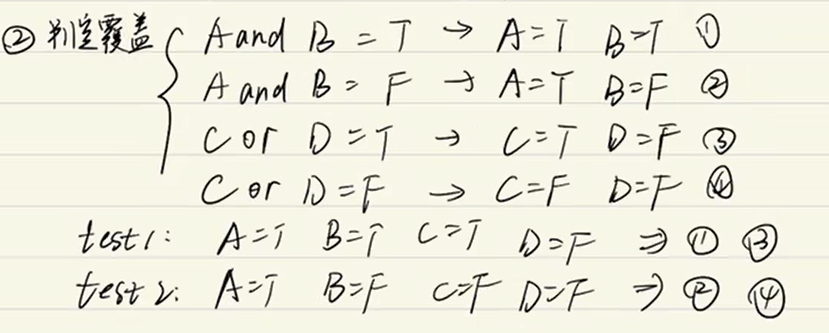 ② 判定覆盖 A and B = T → A=T B=T ①
A and B = F → A=T B=F ②
C or D = T → C=T D=F ③
C or D = F → C=F D=F ④
test1: A=T B=T C=T D=F ⇒ ① ③
test2: A=T B=F C=F D=F ⇒ ② ④